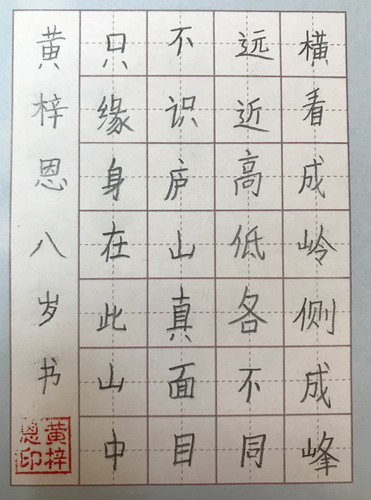 横看成岭侧成峰
远近高低各不同
不识庐山真面目
只缘身在此山中
黄梓恩八岁书
黄梓恩印